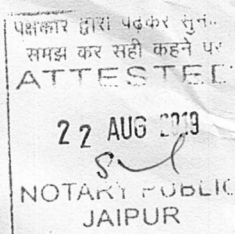 पक्षकार द्वारा पढ़कर सुन..
समझ कर सही कहने पर
ATTESTED
22 AUG 2019
NOTARY PUBLIC
JAIPUR